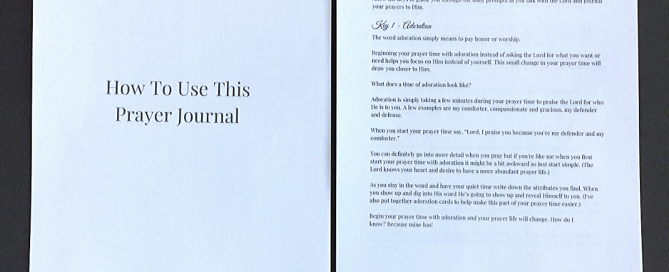 How To Use This
Prayer Journal
your prayers to Him.
Key 1 - Adoration
The word adoration simply means to pay honor or worship.
Beginning your prayer time with adoration instead of asking the Lord for what you want or
need helps you focus on Him instead of yourself. This small change in your prayer time will
draw you closer to Him.
What does a time of adoration look like?
Adoration is simply taking a few minutes during your prayer time to praise the Lord for who
He is to you. A few examples are my comforter, compassionate and gracious, my defender
and defense.
When you start your prayer time say, "Lord, I praise you because you're my defender and my
comforter."
You can definitely go into more detail when you pray but if you're like me when you first
start your prayer time with adoration it might be a bit awkward so just start simple. (The
Lord knows your heart and desire to have a more abundant prayer life.)
As you stay in the word and have your quiet time write down the attributes you find. When
you show up and dig into His word He's going to show up and reveal Himself to you. (I've
also put together adoration cards to help make this part of your prayer time easier.)
Begin your prayer time with adoration and your prayer life will change. How do I
know? Because mine has!